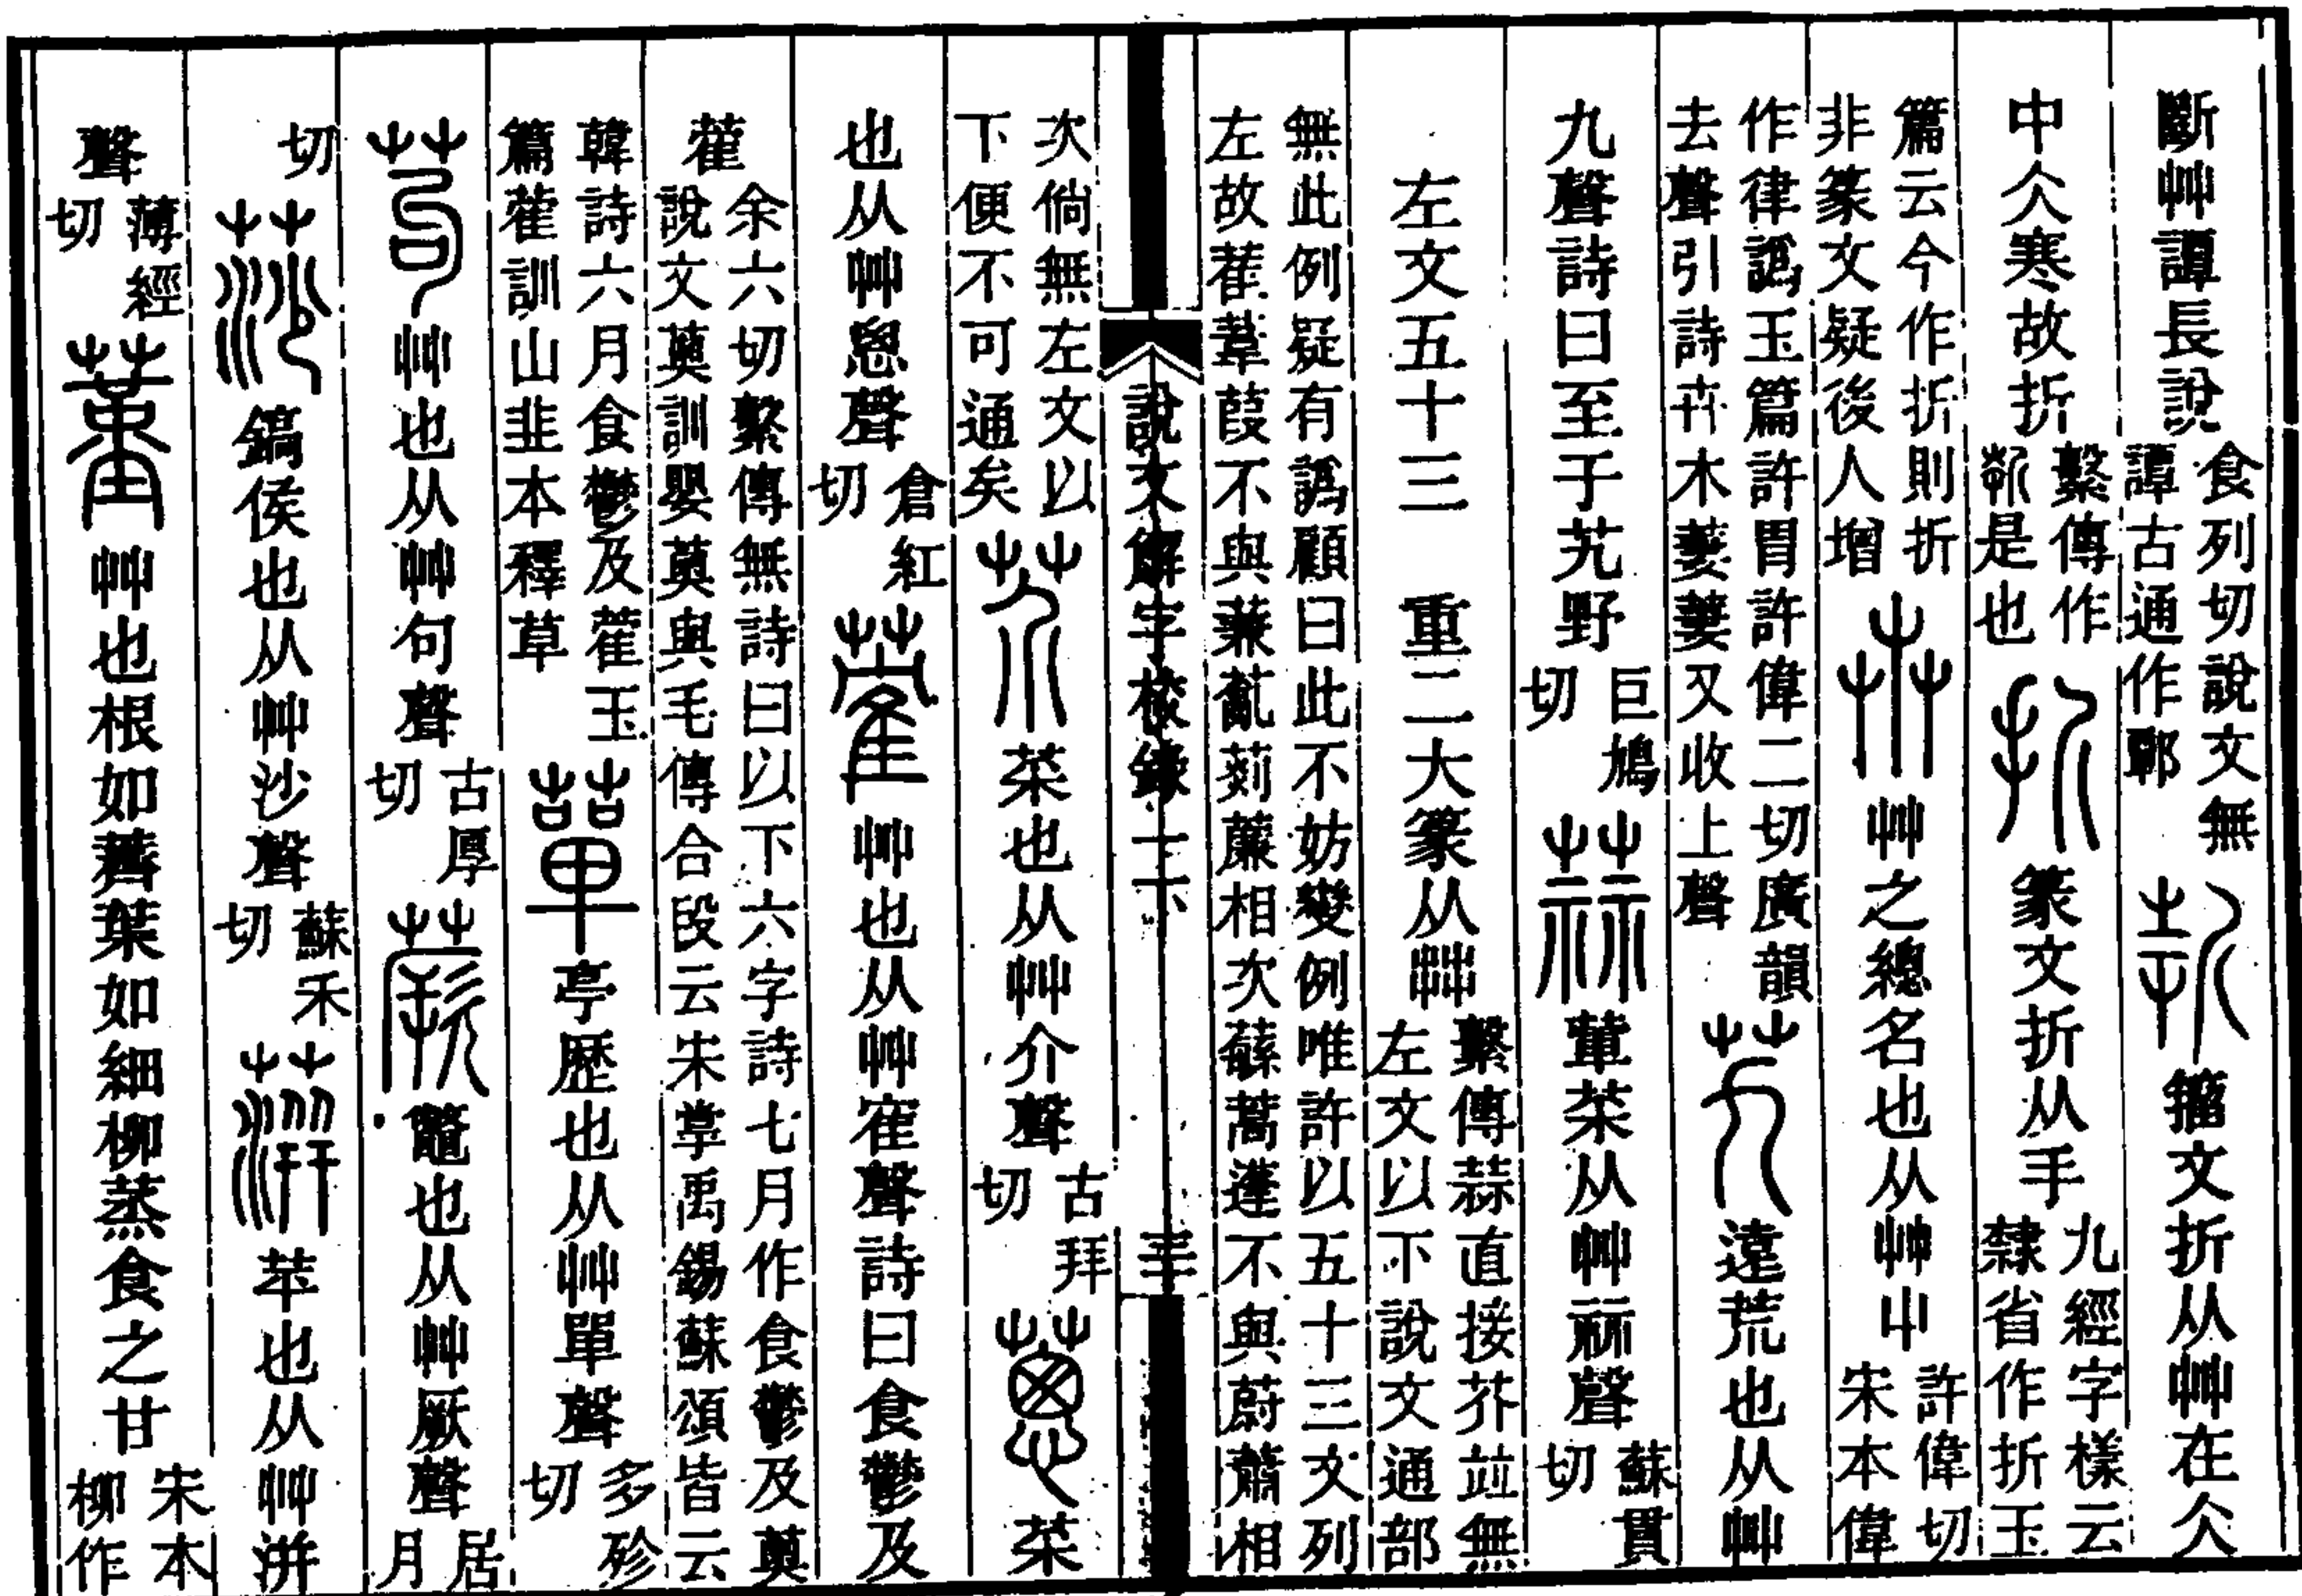 斷艸譚長說食列切說文無譚古通作鄲𣂚籒文折从艸在仌
中仌寒故折繫傳作斴是也折篆文折从手九經字樣云隸省作折玉
篇云今作折則折非篆文疑後人增卉艸之總名也从艸屮許偉切宋本偉
作律譌玉篇許胃許偉二切廣韻去聲引詩卉木萋萋又收上聲艽遠荒也从艸
九聲詩曰至于艽野巨鳩切蒜葷菜从艸祘聲蘇貫切
左文五十三 重二大篆从茻繫傳蒜直接芥竝無左文以下說文通部
無此例疑有譌顧曰此不妨變例唯許以五十三文列左故萑葦葭不與蒹薍茢薕相次蘇蒿蓬不與蔚蕭相
說文解字校錄一下 三
次倘無左文以下便不可通矣芥菜也从艸介聲古拜切蔥菜
也从艸悤聲倉紅切蒮艸也从艸寉聲詩曰食鬱及
蒮余六切繫傳無詩曰以下六字詩七月作食鬱及薁說文薁訓嬰薁與毛傳合段云宋掌禹錫蘇頌皆云
韓詩六月食鬱及蒮玉篇蒮訓山韭本釋草蕇亭歷也从艸單聲多殄切
苟艸也从艸句聲古厚切蕨鼈也从艸厥聲居月
切莎鎬侯也从艸沙聲蘇禾切蓱苹也从艸洴
聲薄經切堇艸也根如薺葉如細柳蒸食之甘宋本柳作